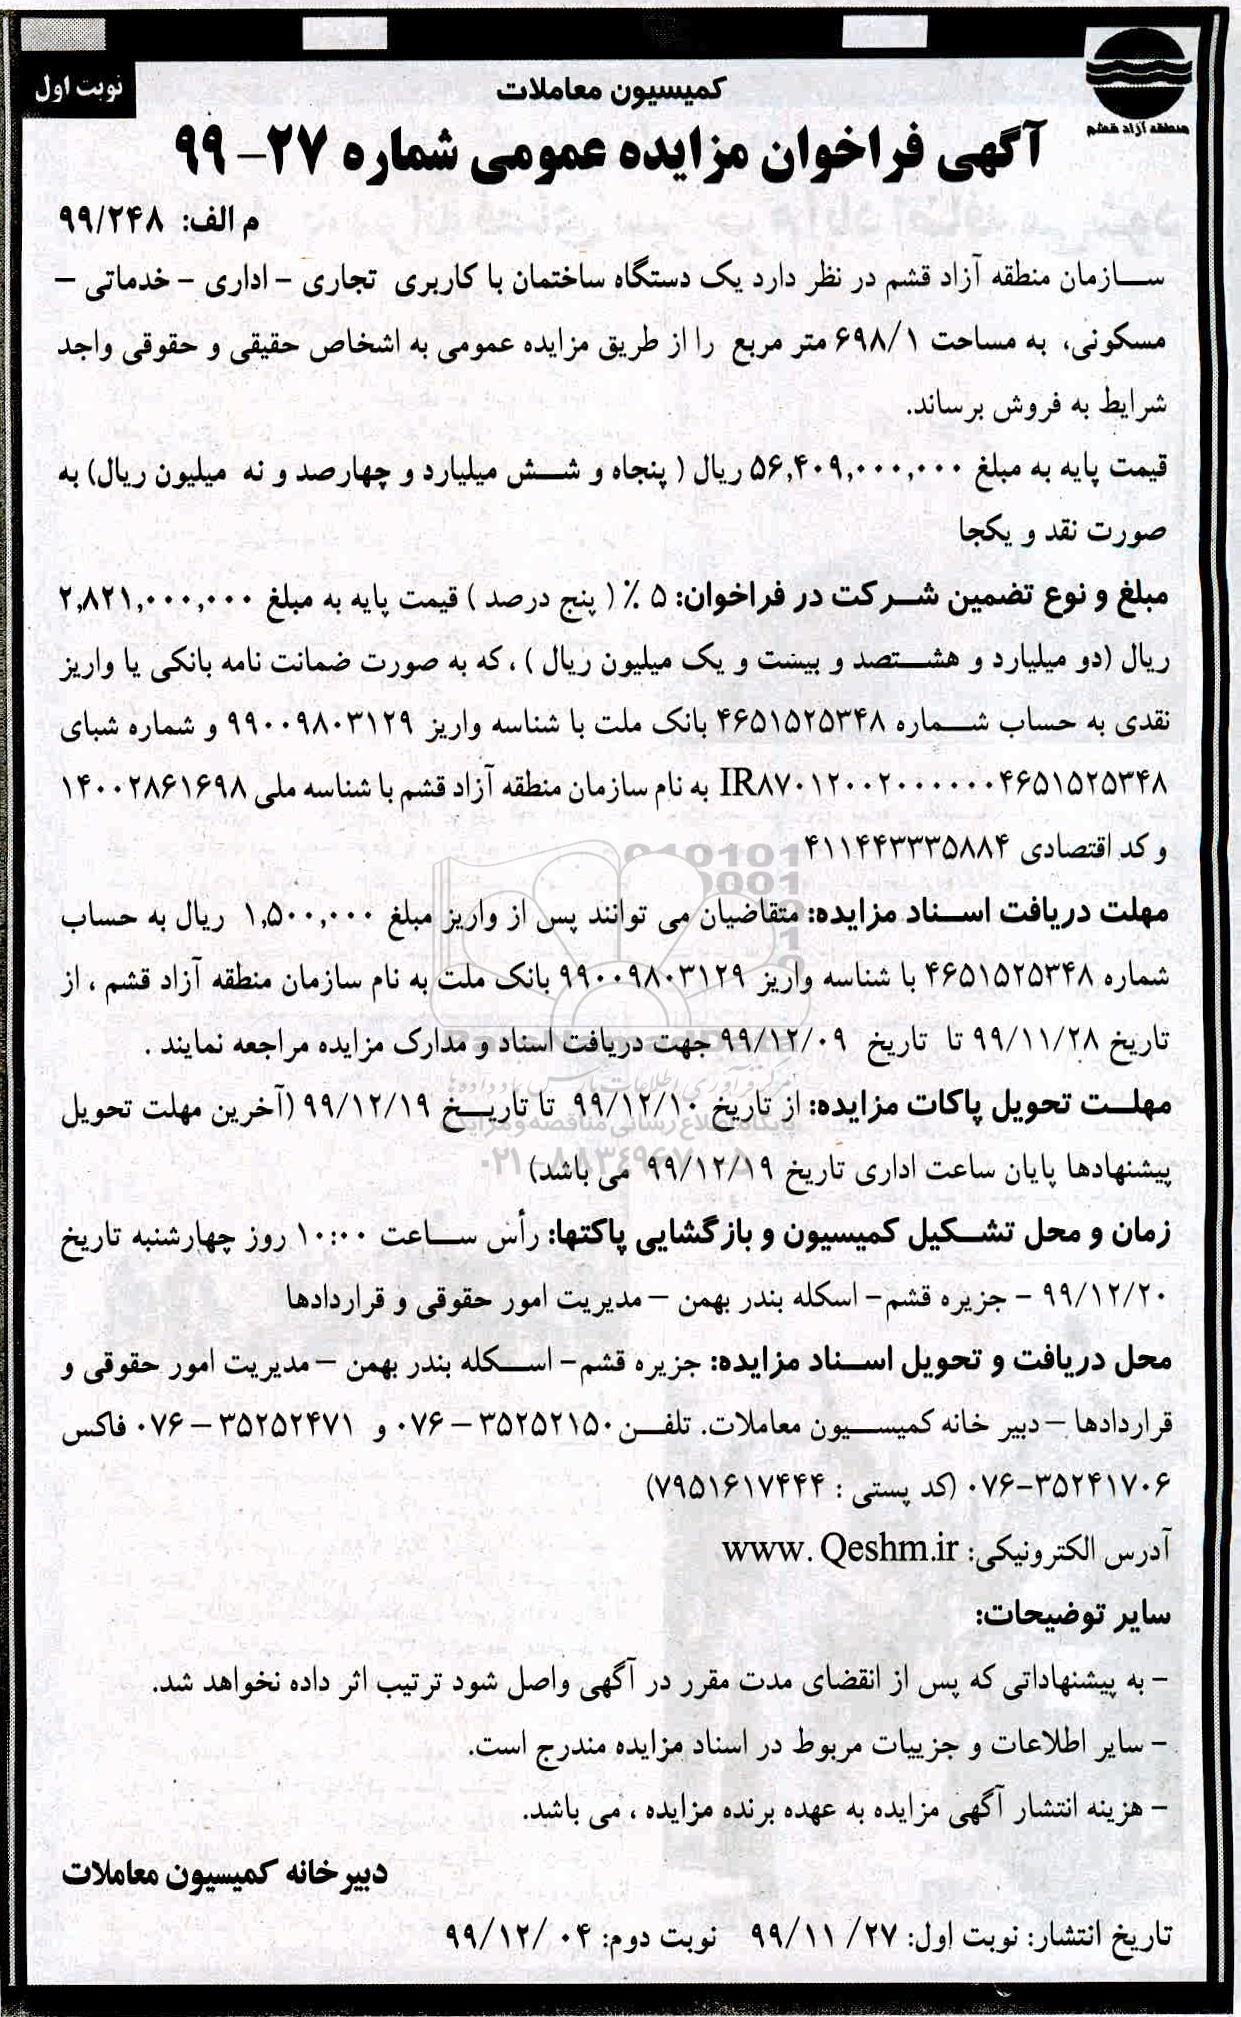 منطقه آزاد قشم
نوبت اول
کمیسیون معاملات
آگهی فراخوان مزایده عمومی شماره ۲۷- ۹۹
م الف: ۹۹/۲۴۸
سازمان منطقه آزاد قشم در نظر دارد یک دستگاه ساختمان با کاربری تجاری - اداری - خدماتی -
مسکونی، به مساحت ۶۹۸/۱ متر مربع را از طریق مزایده عمومی به اشخاص حقیقی و حقوقی واجد
شرایط به فروش برساند.
قیمت پایه به مبلغ ۵۶,۴۰۹,۰۰۰,۰۰۰ ریال ( پنجاه و شش میلیارد و چهارصد و نه میلیون ریال) به
صورت نقد و یکجا
مبلغ و نوع تضمین شرکت در فراخوان: ۵ ٪ ( پنج درصد ) قیمت پایه به مبلغ ۲,۸۲۱,۰۰۰,۰۰۰
ریال (دو میلیارد و هشتصد و بیست و یک میلیون ریال ) ، که به صورت ضمانت نامه بانکی یا واریز
نقدی به حساب شماره ۴۶۵۱۵۲۵۳۴۸ بانک ملت با شناسه واریز ۹۹۰۰۹۸۰۳۱۲۹ و شماره شبای
IR۸۷۰۱۲۰۰۲۰۰۰۰۰۰۴۶۵۱۵۲۵۳۴۸ به نام سازمان منطقه آزاد قشم با شناسه ملی ۱۴۰۰۲۸۶۱۶۹۸
و کد اقتصادی ۴۱۱۴۴۳۳۳۵۸۸۴
مهلت دریافت اسناد مزایده: متقاضیان می توانند پس از واریز مبلغ ۱,۵۰۰,۰۰۰ ریال به حساب
شماره ۴۶۵۱۵۲۵۳۴۸ با شناسه واریز ۹۹۰۰۹۸۰۳۱۲۹ بانک ملت به نام سازمان منطقه آزاد قشم ، از
تاریخ ۹۹/۱۱/۲۸ تا تاریخ ۹۹/۱۲/۰۹ جهت دریافت اسناد و مدارک مزایده مراجعه نمایند .
مهلت تحویل پاکات مزایده: از تاریخ ۹۹/۱۲/۱۰ تا تاریخ ۹۹/۱۲/۱۹ (آخرین مهلت تحویل
پیشنهادها پایان ساعت اداری تاریخ ۹۹/۱۲/۱۹ می باشد)
زمان و محل تشکیل کمیسیون و بازگشایی پاکتها: رأس ساعت ۱۰:۰۰ روز چهارشنبه تاریخ
۹۹/۱۲/۲۰ - جزیره قشم- اسکله بندر بهمن – مدیریت امور حقوقی و قراردادها
محل دریافت و تحویل اسناد مزایده: جزیره قشم- اسکله بندر بهمن – مدیریت امور حقوقی و
قراردادها – دبیر خانه کمیسیون معاملات. تلفن ۳۵۲۵۲۱۵۰ – ۰۷۶ و ۳۵۲۵۲۴۷۱ – ۰۷۶ فاکس
۰۷۶-۳۵۲۴۱۷۰۶ (کد پستی : ۷۹۵۱۶۱۷۴۴۴)
آدرس الکترونیکی: www. Qeshm.ir
سایر توضیحات:
- به پیشنهاداتی که پس از انقضای مدت مقرر در آگهی واصل شود ترتیب اثر داده نخواهد شد.
- سایر اطلاعات و جزییات مربوط در اسناد مزایده مندرج است.
- هزینه انتشار آگهی مزایده به عهده برنده مزایده ، می باشد.
دبیرخانه کمیسیون معاملات
تاریخ انتشار: نوبت اول: ۲۷/ ۹۹/۱۱ نوبت دوم: ۰۴ /۹۹/۱۲